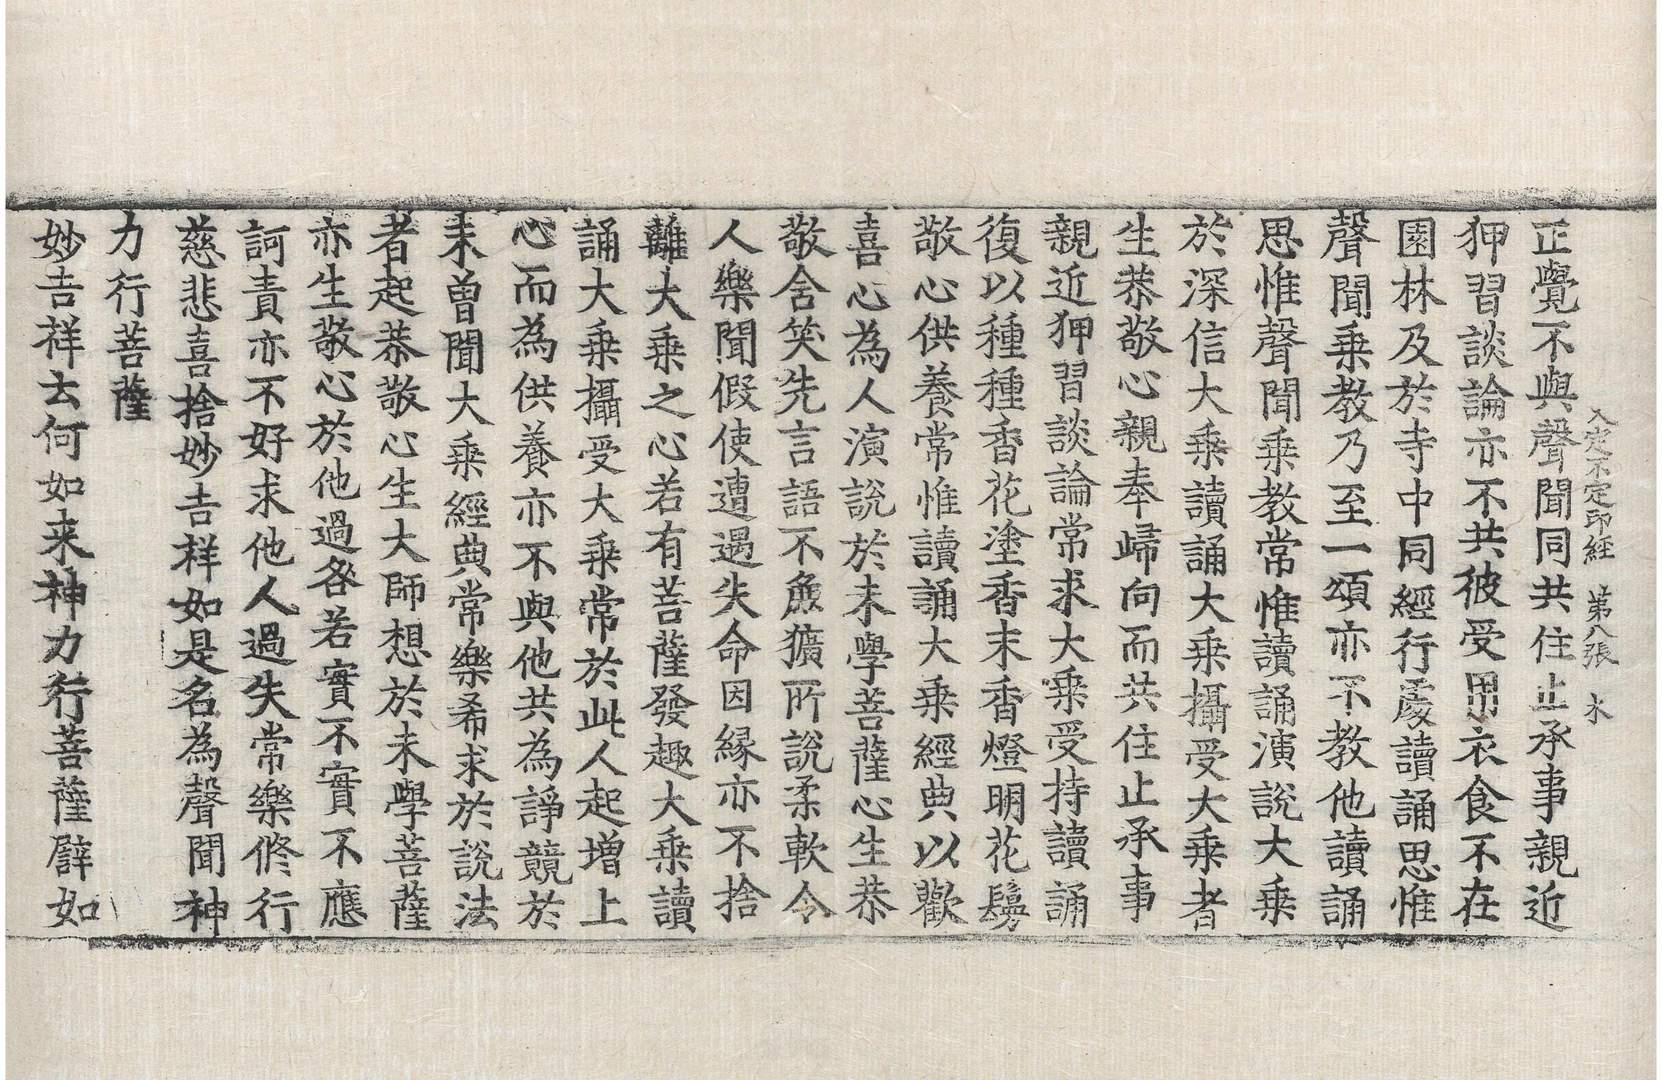 入定不定印経　第八張　氷
正覺不與聲聞同共住止承事親近
狎習談論亦不共彼受用衣食不在
園林及於寺中同經行處讀誦思惟
聲聞乗教乃至一頌亦不教他讀誦
思惟聲聞乗教常惟讀誦演說大乗
於深信大乗讀誦大乗攝受大乗者
生恭敬心親奉歸向而共住止承事
親近狎習談論常求大乗受持讀誦
復以種種香花塗香末香燈明花鬘
敬心供養常惟讀誦大乗經典以歡
喜心為人演說於未學菩薩心生恭
敬舍笑先言語不麁獷所說柔軟令
人樂聞假使遭遇失命因緣亦不捨
離大乗之心若有菩薩發趣大乗讀
誦大乗攝受大乗常於此人起增上
心而為供養亦不與他共為諍競於
未曾聞大乗經典常樂希求於說法
者起恭敬心生大師想於未學菩薩
亦生敬心於他過咎若實不實不應
訶責亦不好求他人過失常樂修行
慈悲喜捨妙吉祥如是名為聲聞神
力行菩薩
妙吉祥云何如来神力行菩薩譬如